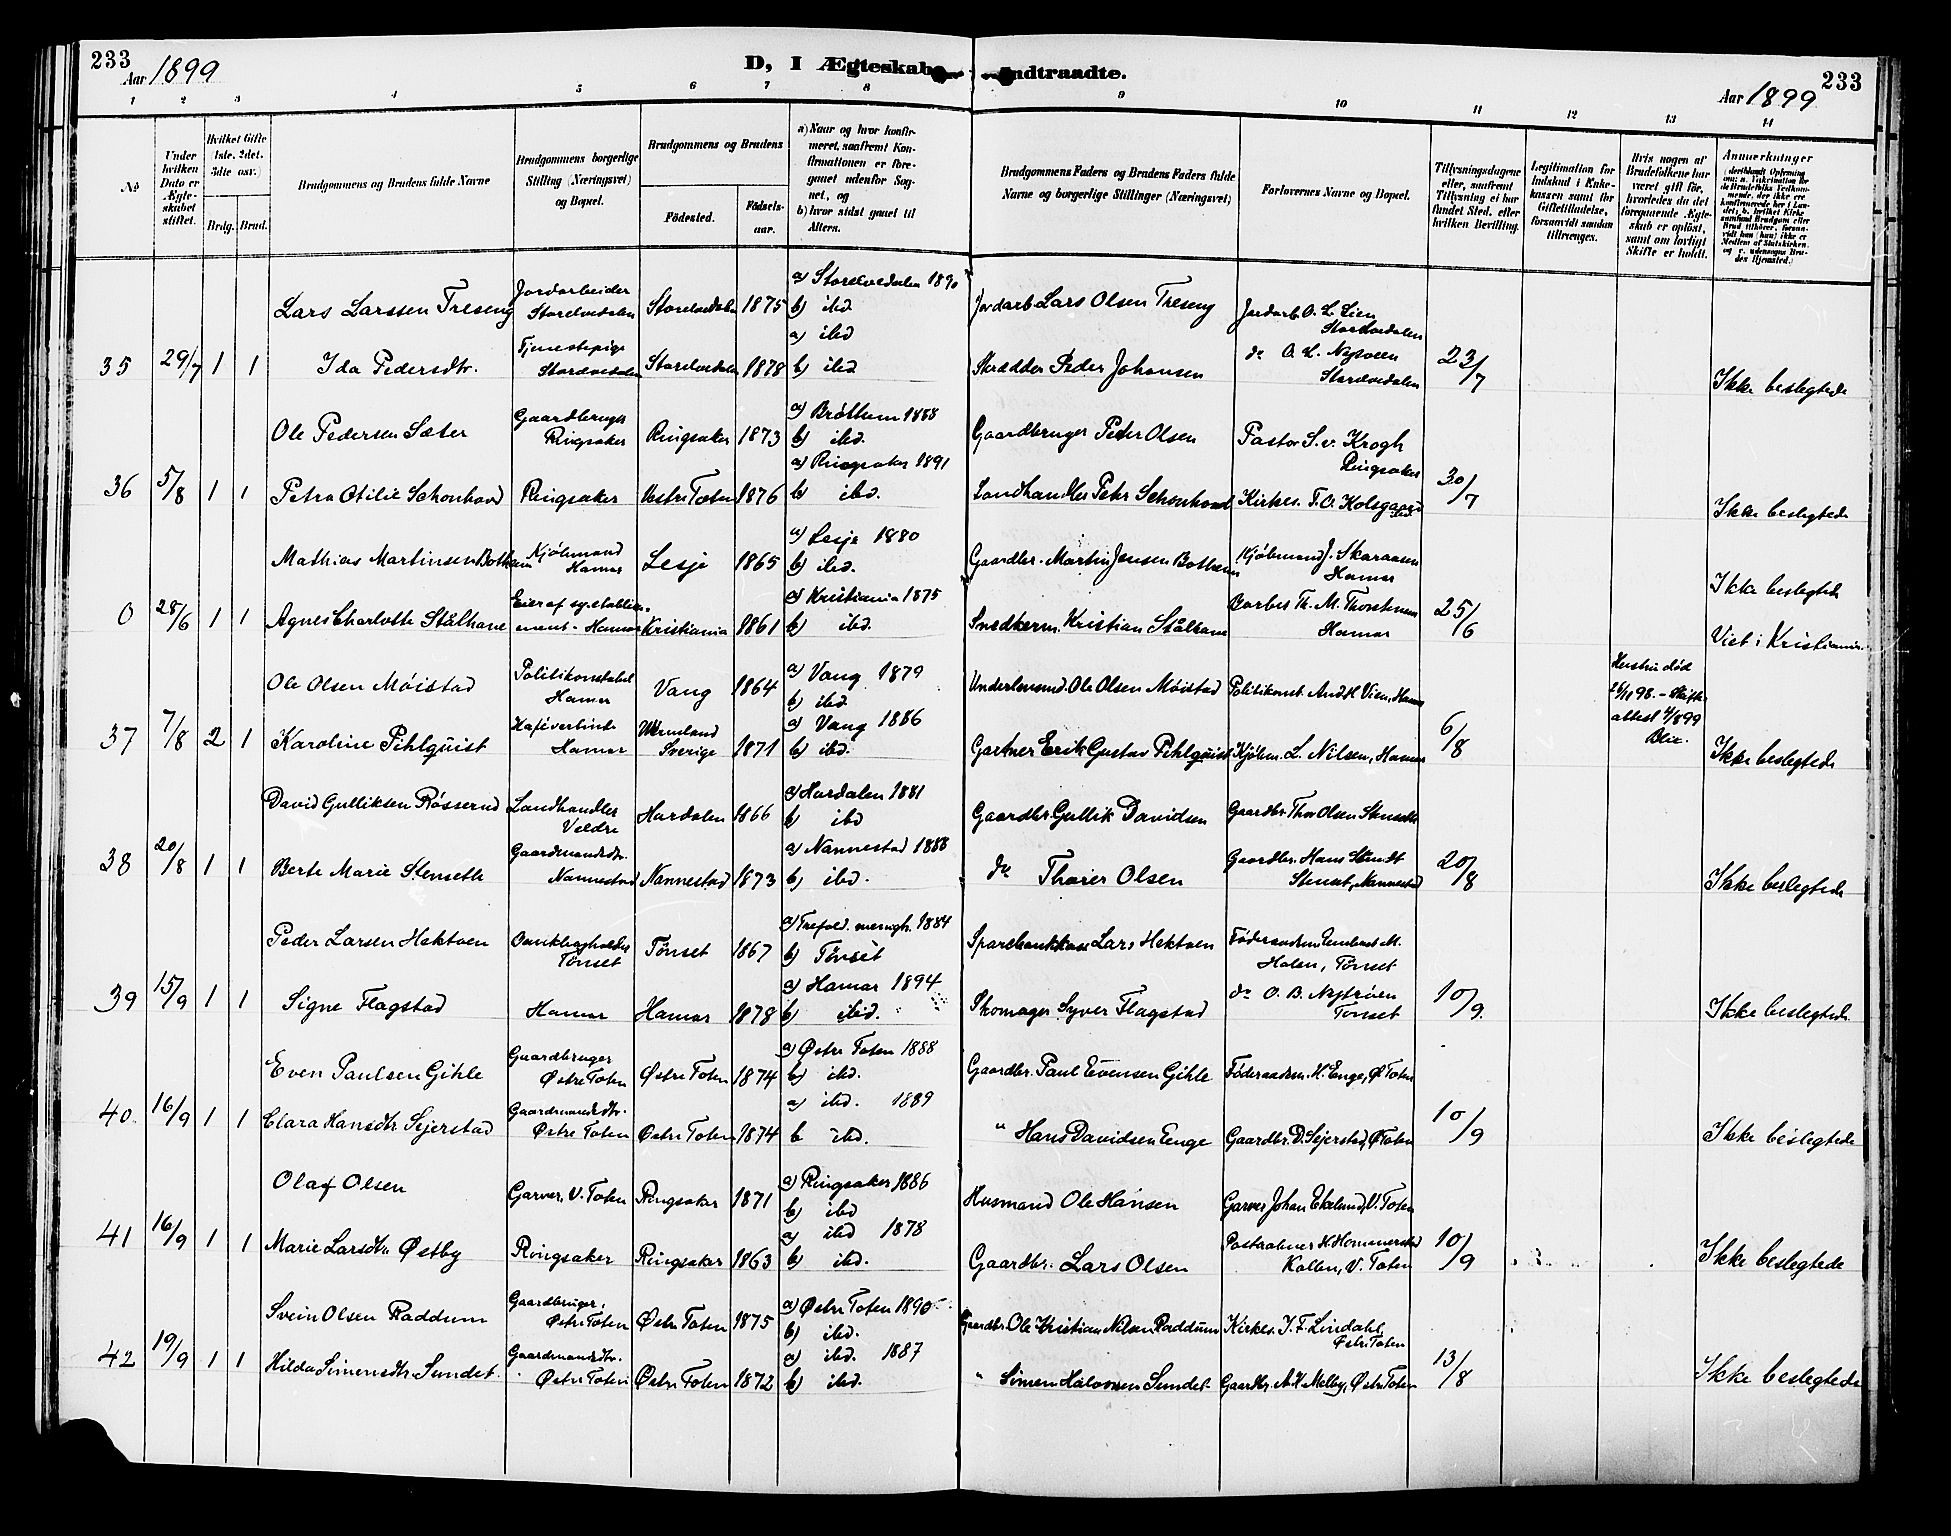 233
Aar 1899
D, I Ægteskab
Indtraadte.
Aar 1899
233
1 2 3 4 5 6 7 8 9 10 11 12 13 14
No
Under hvilken Dato er Ægteskabet stiftet.
Hvilket Gifte (1ste, 2det, 3dte osv.)
Brdg. Brud.
Brudgommens og Brudens fulde Navne
Brudgommens borgerlige Stilling (Næringsvei) og Bopæl.
Brudgommens og Brudens
Fødested.
Fødselsaar.
a) Naar og hvor konfirmeret, saafremt Konfirmationen er foregaaet udenfor Sognet, og
b) hvor sidst gaaet til Alters.
Brudgommens Faders og Brudens Faders fulde Navne og borgerlige Stillinger (Næringsvei)
Forlovernes Navne og Bopæl.
Tillysningsdagene eller, saafremt Tillysning ei har fundet Sted, efter hvilken Bevilling.
Legitimation for Indskud i Enkekassen samt for Giftetilladelse, forsaavidt saadan tiltrænges.
Hvis nogen af Brudefolkene har været gift før, hvorledes da det foregaaende Ægteskab er opløst, samt om lovligt Skifte er holdt.
Anmærkninger
Lars Larssen Treseng Jordarbeider Storelvedalen Storelvedalen 1875 a) Storelvedalen 1890 b) ibd Jordarb Lars Olsen Treseng Jordarb. O. L. Lien Storelvedalen
35 29/7 1 1 Ida Pedersdtr. Tjenestepige Storelvedalen Storelvedalen 1878 a) ibd b) ibd Skrædder Peder Johansen do O. L. Nysveen Storelvedalen 23/7 Ikke beslegtede
Ole Pedersen Sæter Gaardbruger Ringsaker Ringsaker 1873 a) Brøttum 1888 b) ibd. Gaardbruger Peder Olsen Pastor S. v. Krogh Ringsaker
36 5/8 1 1 Petra Otilie Schonhovd Ringsaker Vestre Toten 1876 a) Ringsaker 1891 b) ibd. Landhandler Petr Schonhovd Kirkes. T. O. Kolsgaard ibd 30/7 Ikke beslegtede
Mathias Martinsen Botheim Kjøbmand Hamar Lesje 1865 a) Lesje 1880 b) ibd. Gaardbr. Martin Jensen Botheim Kjøbmand J. Skaraasen Hamar
0 28/6 1 1 Agnes Charlotte Stålhane Eier af sy.etablissement - Hamar Kristiania 1861 a) Kristiania 1875 b) ibd. Snedkerm. Kristian Stålhane Barber Th. M. Thorstensen Hamar 25/6 Ikke beslegtede Viet i Kristiania.
Ole Olsen Møistad Politikonstabel Hamar Vang 1864 a) Vang 1879 b) ibd. Ole Olsen Møistad Politikonst. And H. Vien, Hamar Hustru død 98. - Skifteattest 4/8 99 Blix.
37 7/8 2 1 Karoline Pihlquist Kaféværtinde Hamar Wermland Sverige 1871 a) Vang 1886 b) ibd. Gartner Erik Gustav Pihlquist Kjøbm. L. Nilsen, Hamar 6/8 Ikke beslegtede
David Gulliksen Røsserud Landhandler Veldre Hurdalen 1866 a) Hurdalen 1881 b) ibd Gaardbr. Gullik Davidsen Gaardbr. Thor Olsen Stenseth
38 20/8 1 1 Berte Marie Stenseth Gaardmandsdtr. Nannestad Nannestad 1873 a) Nannestad 1888 b) ibd. do Thorer Olsen Gaardbr. Hans Stenset, Nannestad 20/8 Ikke beslegtede
Peder Larsen Hektoen Tønset Tønset 1867 a) Trefold. menigh. 1884 b) Tønset Sparebankkass Lars Hektoen Føderaadsm M. Holen, Tønset
39 15/9 1 1 Signe Flagstad Hamar Hamar 1878 a) Hamar 1894 b) ibid. Skomager Syver Flagstad do O. B. Nytrøen Tønset 10/9. Ikke beslegtede.
Even Paulsen Gihle Gaardbruger Østre Toten Østre Toten 1874 a) Østre Toten 1888 b) ibd. Gaardbr. Paul Evensen Gihle Føderaadsm. M. Enge, Ø Toten
40. 16/9 1 1 Clara Hansdtr Sejerstad Gaardmandsdtr. Østre Toten Østre Toten 1874 a) ibd. 1889 b ibd. " Hans Davidsen Enge Gaardbr. D. Sejerstad, Ø Toten 10/9 Ikke beslegtede
Olaf Olsen Garver, V. Toten Ringsaker 1871 a) Ringsaker 1886 b) ibd Husmand Ole Hansen Garver Johan Ekelund, V. Toten
41 16/9 1 1 Marie Larsdtr Østby Ringsaker Ringsaker 1863 a) ibd 1878 b) ibd. Gaardbr. Lars Olsen Postaabner H Hommerstad Kolben, V. Toten 10/9 Ikke beslegtede
Svein Olsen Raddum Gaardbruger, Østre Toten Østre Toten 1875 a) Østre Toten 1890 b) ibd. Gaardbr. Ole Kristian Nilsen Raddum Kirkes. J. F. Lindahl, Østre Toten
42 19/9 1 1 Hilda Simensdtr. Sundet. Gaardmandsdtr. Østre Toten Østre Toten 1872 a) ibd. 1887 b) ibd. " Simen Halvorsen Sundet Gaardbr. A. H. Melby, Østre Toten 13/8 Ikke beslegtede